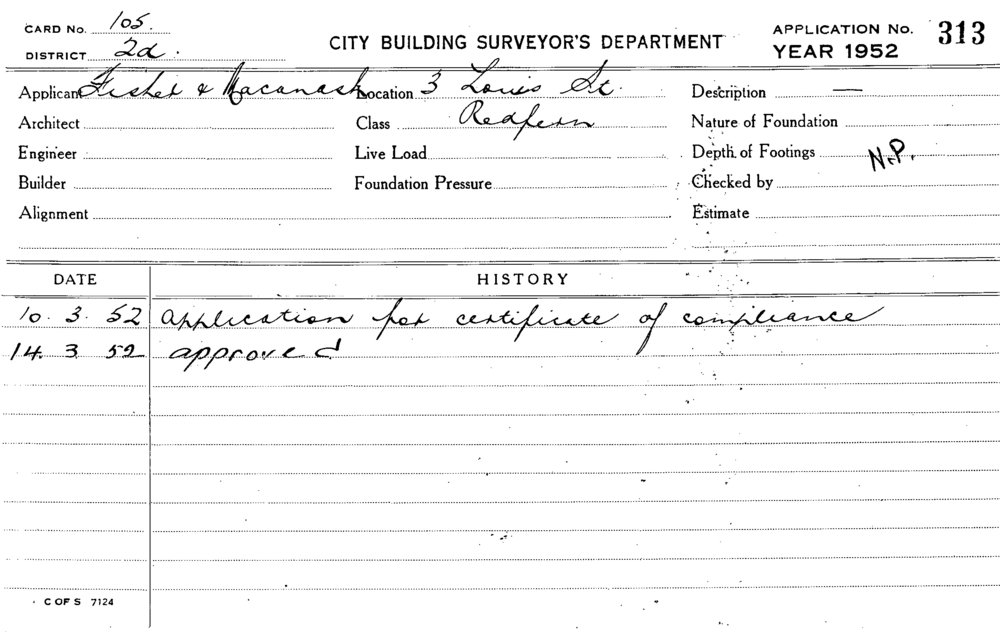 CARD No. 105.
DISTRICT 2d.
CITY BUILDING SURVEYOR'S DEPARTMENT
APPLICATION No. 313
YEAR 1952
Applicant Fisher & Macansh Location 3 Louis St. Description —
Architect Class Redfern Nature of Foundation
Engineer Live Load Depth of Footings N.P.
Builder Foundation Pressure Checked by
Alignment Estimate
DATE HISTORY
10. 3. 52 Application for certificate of compliance
14. 3 52 approved
C OF S 7124